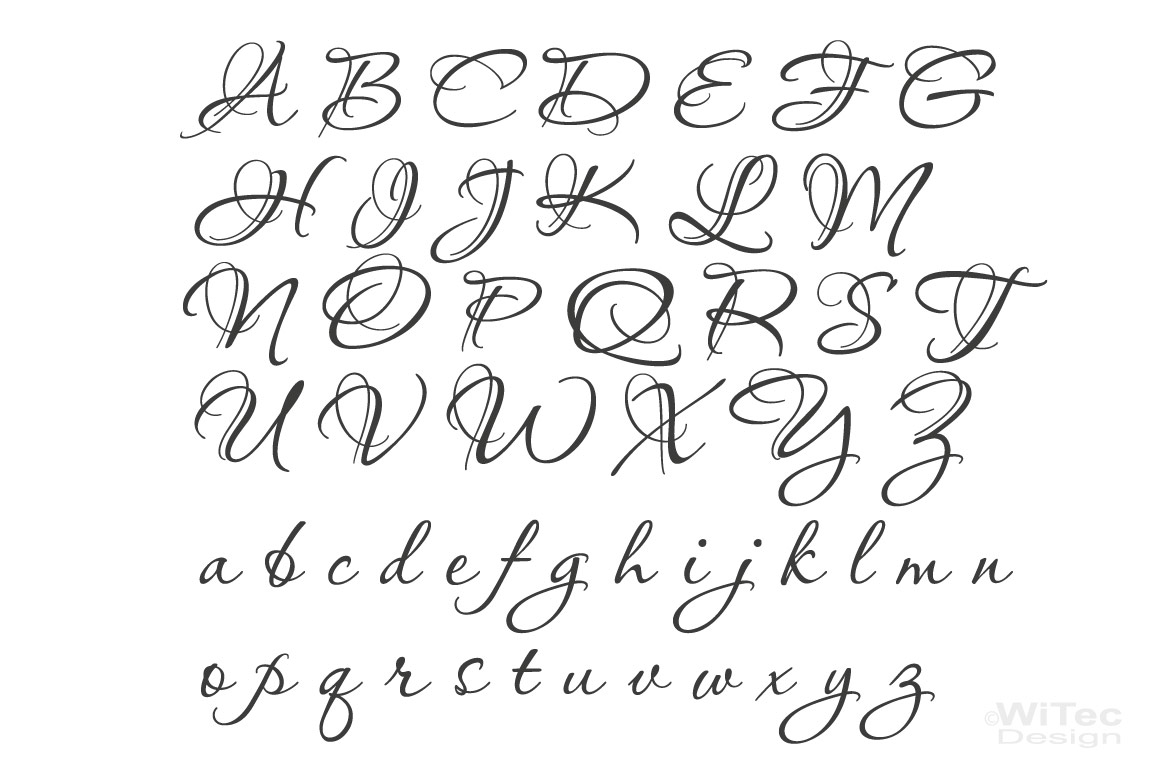 A B C D E F G
H I J K L M
N O P Q R S T
U V W X Y Z
a b c d e f g h i j k l m n
o p q r s t u v w x y z
©WiTec
Design